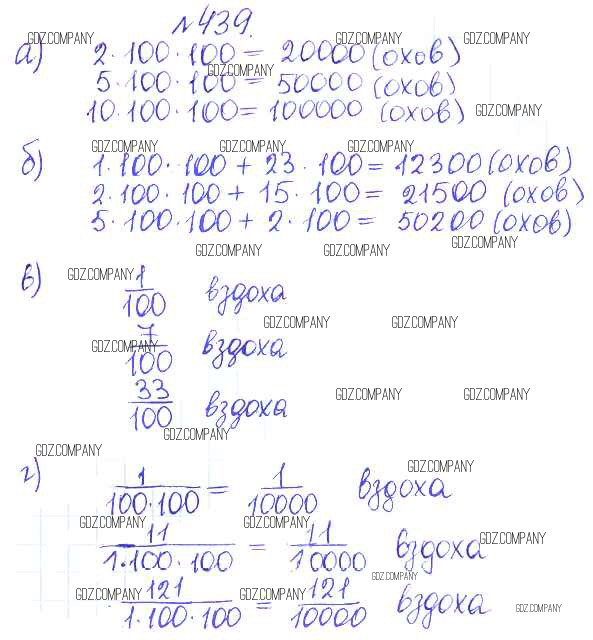 №439.
GDZ.COMPANY GDZ.COMPANY GDZ.COMPANY
а) 2·100·100 = 20000 (охов)
GDZ.COMPANY
5·100·100 = 50000 (охов)
10·100·100 = 100000 (охов) GDZ.COMPANY
GDZ.COMPANY GDZ.COMPANY GDZ.COMPANY
б) 1·100·100 + 23·100 = 12300 (охов)
2·100·100 + 15·100 = 21500 (охов)
5·100·100 + 2·100 = 50200 (охов)
GDZ.COMPANY GDZ.COMPANY GDZ.COMPANY
в) GDZ.COMPANY
1/100 вздоха
GDZ.COMPANY GDZ.COMPANY
GDZ.COMPANY
7/100 вздоха
GDZ.COMPANY GDZ.COMPANY
33/100 вздоха
GDZ.COMPANY
GDZ.COMPANY GDZ.COMPANY
г) 1/(100·100) = 1/10000 вздоха
GDZ.COMPANY GDZ.COMPANY GDZ.COMPANY
11/(1·100·100) = 11/10000 вздоха
GDZ.COMPANY
GDZ.COMPANY GDZ.COMPANY GDZ.COMPANY
121/(1·100·100) = 121/10000 вздоха